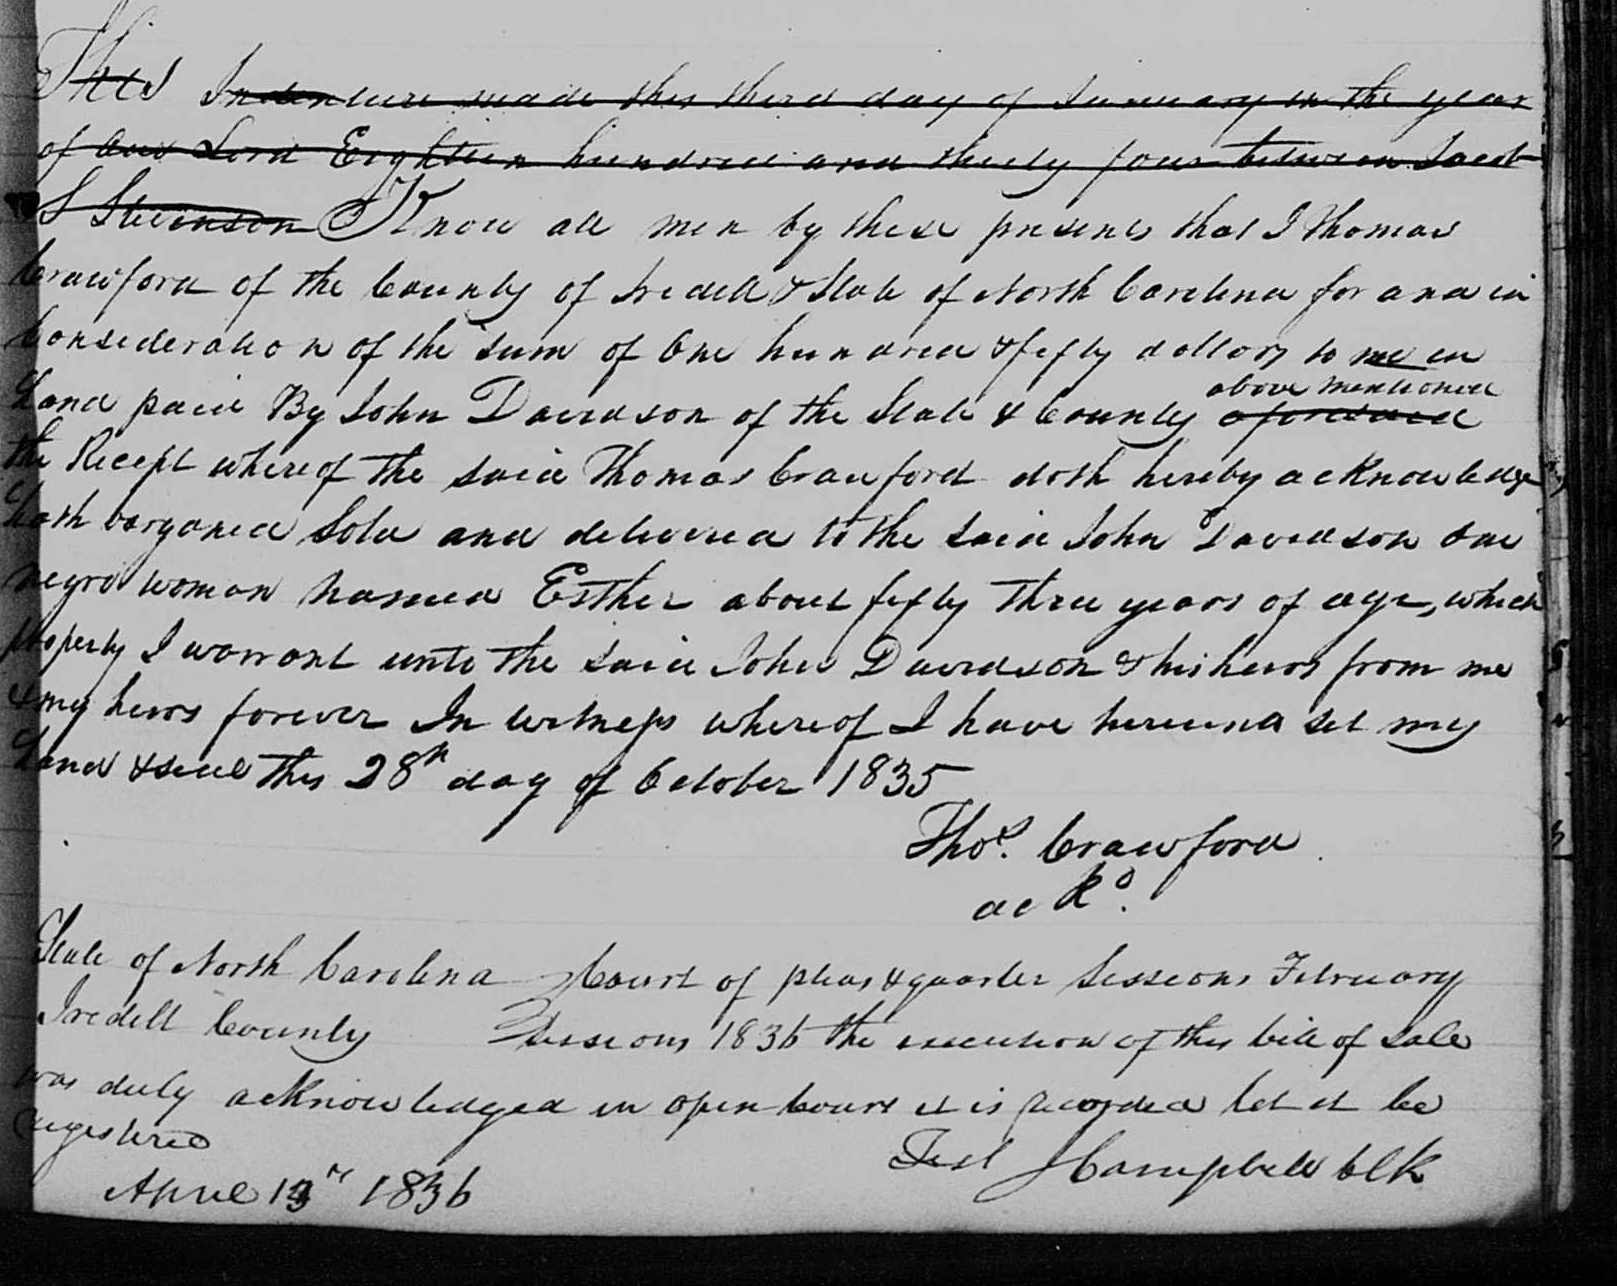 This Indenture made this third day of January in the year
of Our Lord Eighteen hundred and thirty four between
S Stevenson Know all men by these presents that I Thomas
Crawford of the County of Iredell & State of North Carolina for and in
Consideration of the sum of One hundred & fifty dollars to me in
above mentioned
hand paid By John Davidson of the State & County aforesaid
the Recept whereof the said Thomas Crawford doth hereby acknowledge
hath barganed Sold and delivered to the said John Davidson one
negro woman named Esther about fifty three years of age, which
property I warrant unto the said John Davidson & his heirs from me
& my heirs forever In witness whereof I have hereund set my
hand & seal this 28th day of October 1835
Thos. Crawford
ackd.
State of North Carolina Court of pleas & quarter Sessions February
Iredell County Sessions 1836 the execution of this bill of sale
was duly acknowledged in open Court it is recorded let it be
registered
Test J Campbell Clk
April 13th 1836